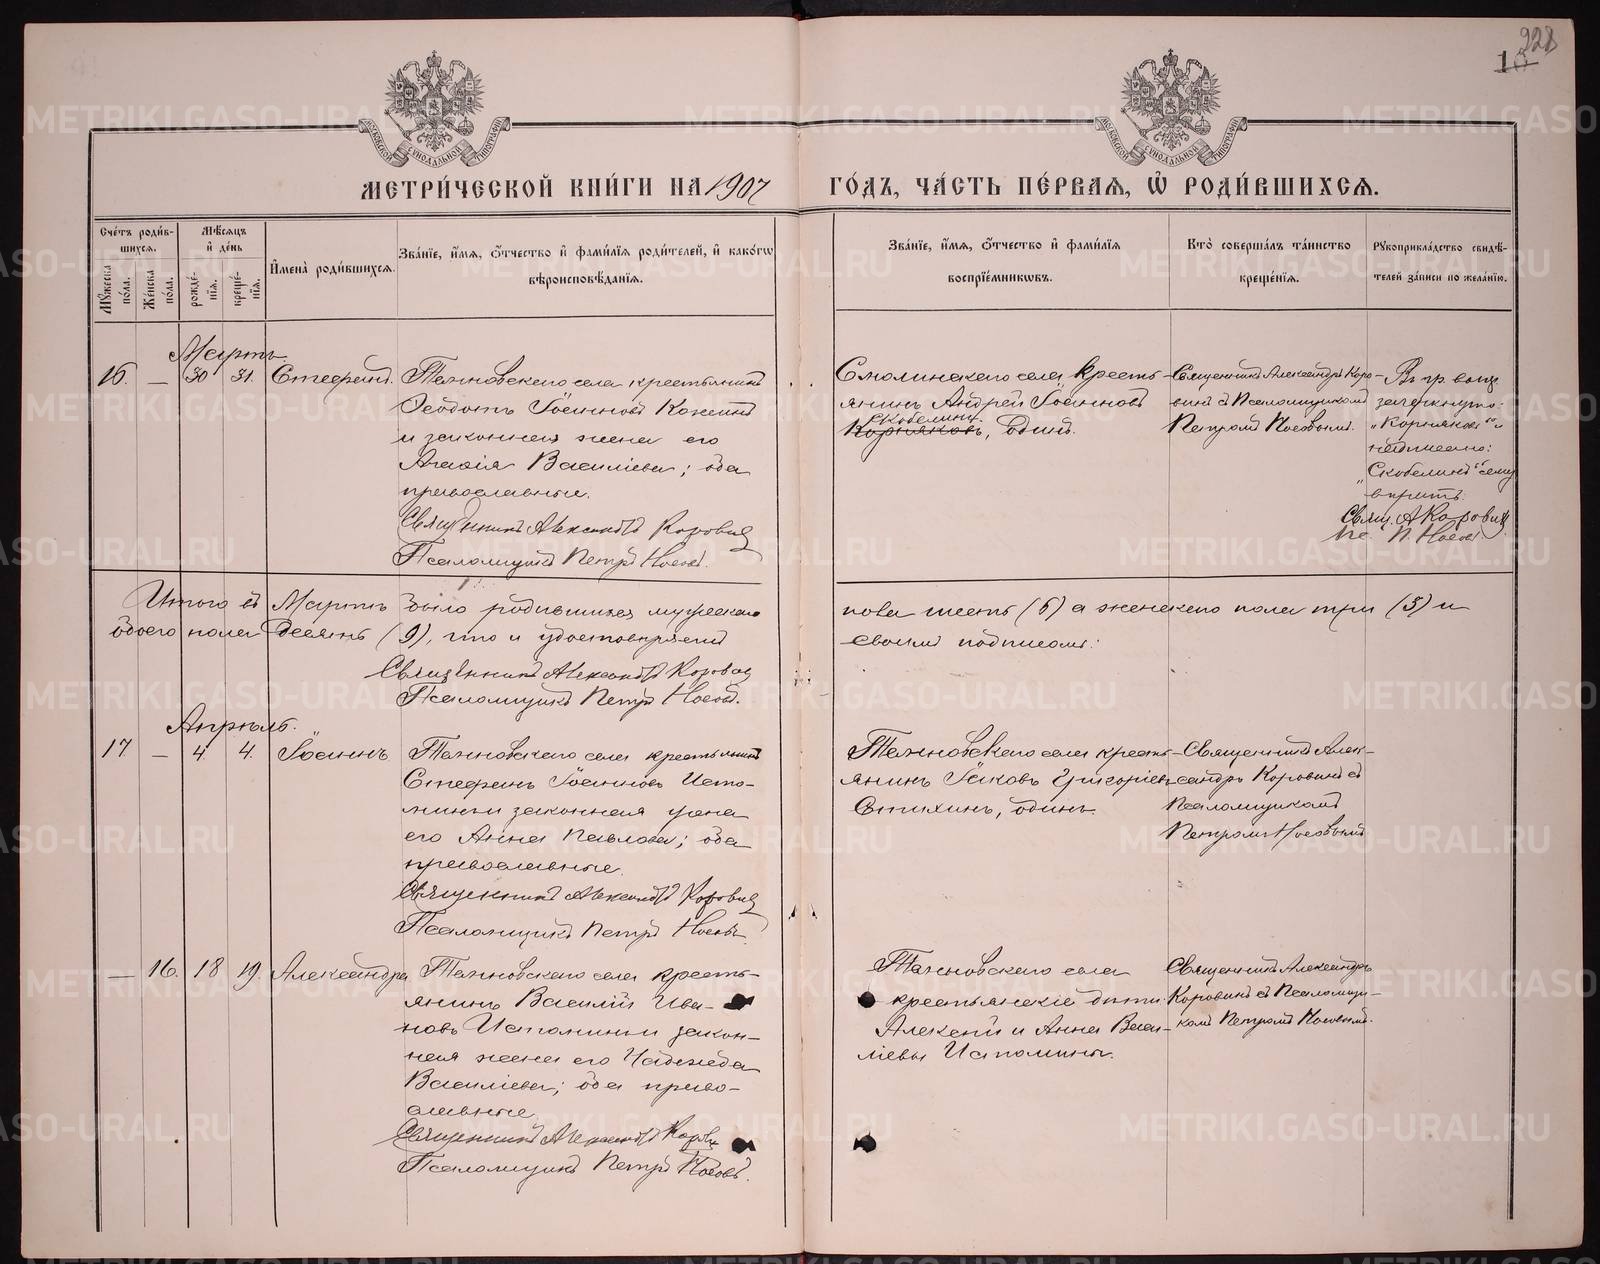 228
МОСКОВСКОЙ СѴНОДАЛЬНОЙ ТИПОГРАФІИ
МОСКОВСКОЙ СѴНОДАЛЬНОЙ ТИПОГРАФІИ
МЕТРИ́ЧЕСКОЙ КНИ́ГИ НА 1907 ГО́ДЪ, ЧА́СТЬ ПЕ́РВАЯ, Ѡ҆ РОДИ́ВШИХСЯ.
Сче́тъ роди́в-
шихся.
Мꙋ́жеска по́ла.
Же́нска по́ла.
Мѣ́сяцъ
и҆ де́нь
рожде́-
нїя.
креще́-
нїя.
И҆мена̀ роди́вшихся.
Зва́нїе, и҆́мя, ѻ҆́тчество и҆ фами́лїя роди́телей, и҆ како́гѡ
вѣроисповѣ́данїя.
Зва́нїе, и҆́мя, ѻ҆́тчество и҆ фами́лїя
воспрїе́мникѡвъ.
Кто̀ соверша́лъ та́инство
креще́нїя.
Рꙋкоприкла́дство свидѣ́-
телей за́писи по жела́нїю.
Мартъ.
16. — 30 31. Стефанъ.
Тахновскаго села крестьянинъ
Ѳеодотъ Іоанновъ
и законная жена его
Агаѳія Василіева; оба
православные.
Священникъ Александръ Коровинъ
Псаломщикъ Петръ Носовъ.
Смолинскаго села кресть-
янинъ Андрей Іоанновъ
Скобелинъ
Корняковъ, одинъ.
Священникъ Александръ Коро-
винъ съ Псаломщикомъ
Петромъ Носовымъ.
Въ гр. восп.
зачеркнуто:
„Корняковъ“ и
надписано:
„Скобелинъ“ сему
вѣрить.
Свящ. А Коровинъ
Пс. П. Носовъ
Итого въ Мартѣ было родившихся мужескаго пола шесть (6) а женскаго пола три (3) и
обоего пола девять (9), что и удостовѣряемъ своимъ подписомъ:
Священникъ Александръ Коровинъ
Псаломщикъ Петръ Носовъ.
Апрѣль.
17 — 4. 4. Іоаннъ
Тахновскаго села крестьянинъ
Стефанъ Іоанновъ Исто-
минъ и законная жена
его Анна Павлова; оба
православные.
Священникъ Александръ Коровинъ
Псаломщикъ Петръ Носовъ
Тахновскаго села кресть-
янинъ Іаковъ Григоріевъ
Стихинъ, одинъ.
Священникъ Алек-
сандръ Коровинъ съ
Псаломщикомъ
Петромъ Носовымъ
— 16. 18 19. Александра
Тахновскаго села кресть-
янинъ Василій Ива-
новъ Истоминъ и закон-
ная жена его Надежда
Василіева; оба право-
славные
Священникъ Александръ Коровинъ
Псаломщикъ Петръ Носовъ.
Тахновскаго села
крестьянскіе дѣти
Алексѣй и Анна Васи-
ліевы Истомины.
Священникъ Александръ
Коровинъ съ Псаломщи-
комъ Петромъ Носовымъ.
METRIKI.GASO-URAL.RU